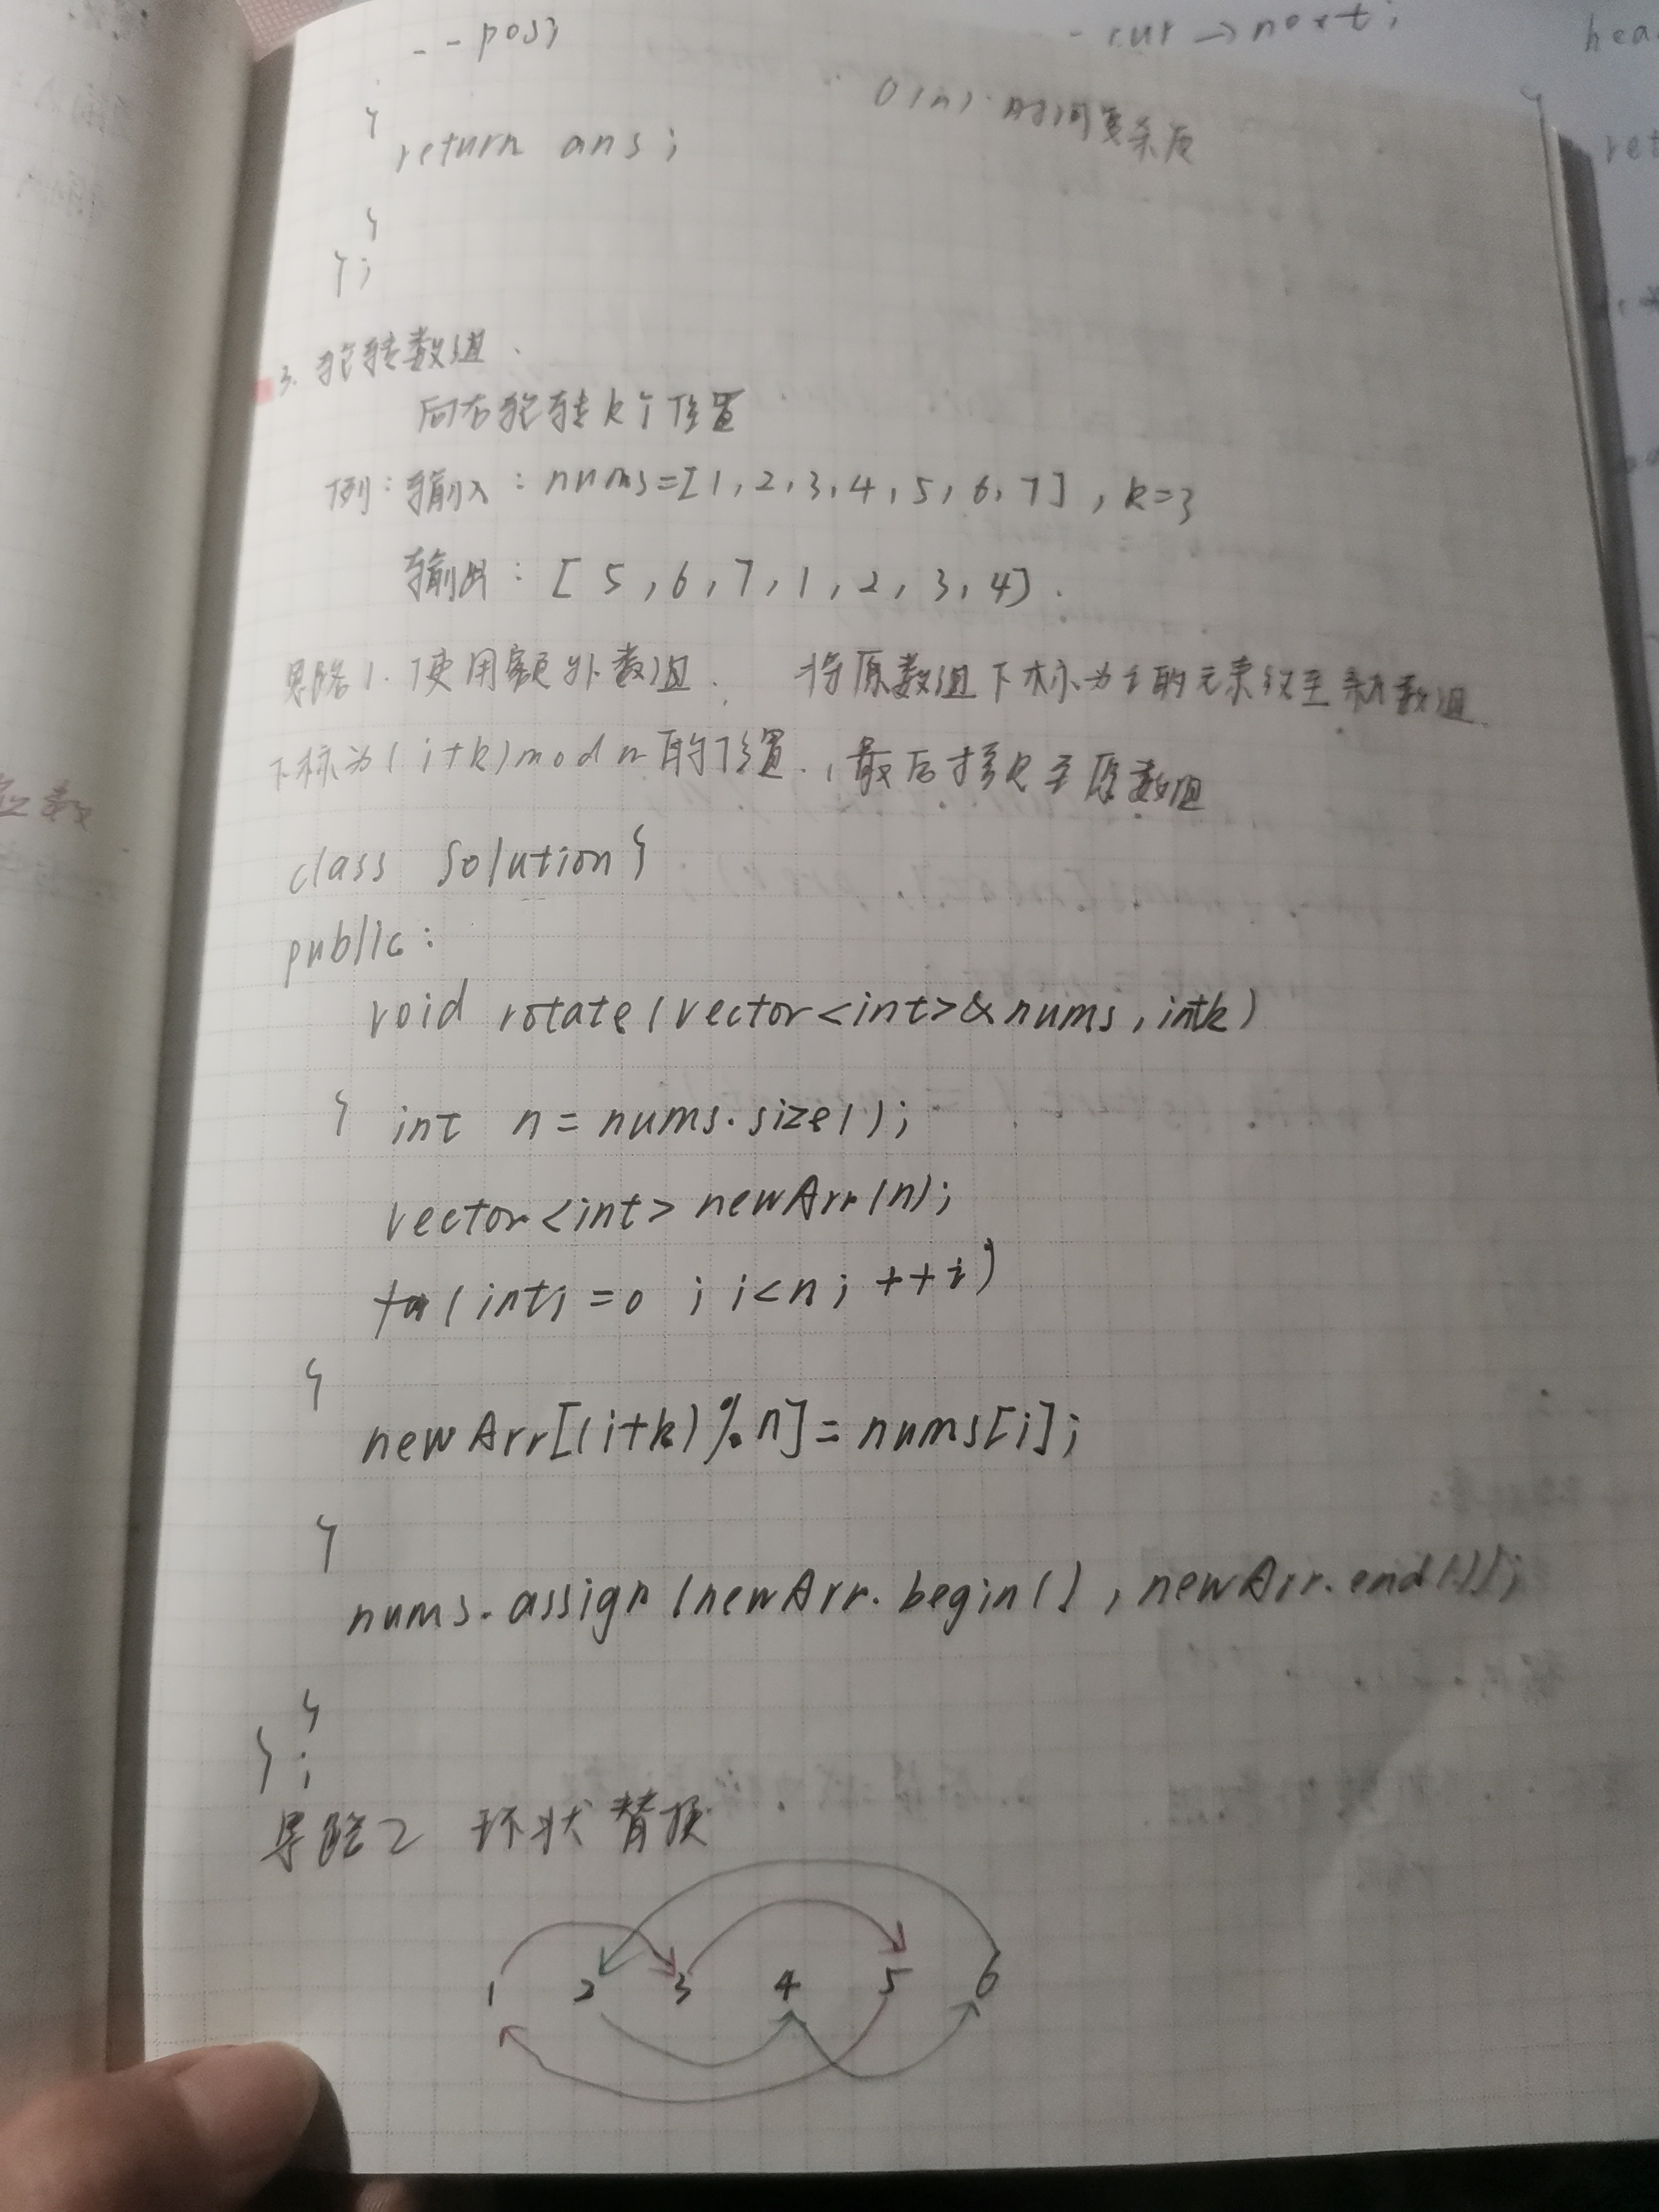 --pos;
-cur->next;
hea
}
return ans;
O(n)时间复杂度
ret
}
};
3. 轮转数组.
向右轮转k个位置
例:输入:nums=[1,2,3,4,5,6,7],k=3
输出:[5,6,7,1,2,3,4].
思路1.使用额外数组. 将原数组下标为i的元素放至新数组
下标为(i+k)mod n的位置.,最后拷贝至原数组
class Solution{
public:
void rotate(vector<int>&nums,intk)
{ int n=nums.size();
vector<int> newArr(n);
for(inti=0;i<n;++i)
{
newArr[(i+k)%n]=nums[i];
}
nums.assign(newArr.begin(),newArr.end());
}
};
思路2 环状替换
1 2 3 4 5 6